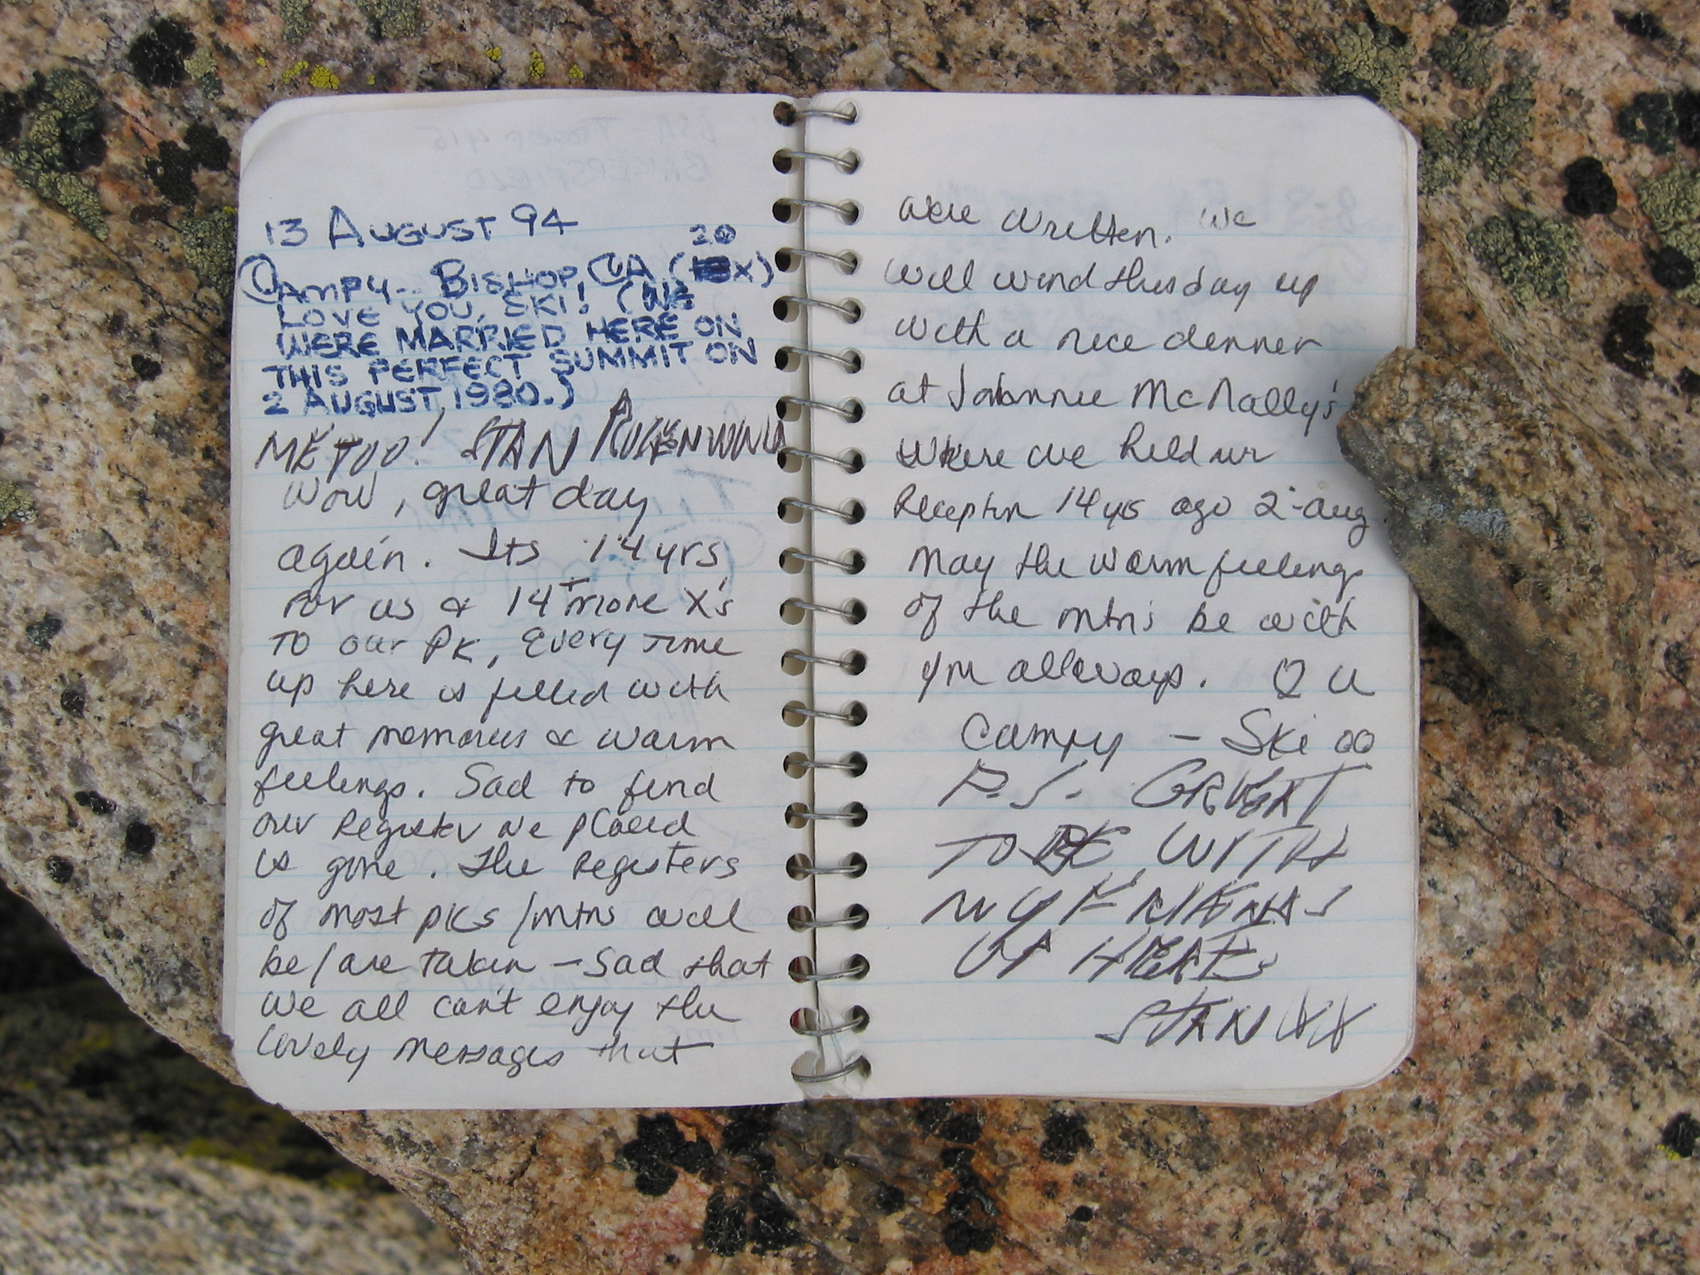 13 AUGUST 94
20
CAMPY.. BISHOP, CA (X)
LOVE YOU, SKI! (WE
WERE MARRIED HERE ON
THIS PERFECT SUMMIT ON
2 AUGUST, 1980.)
ME TOO! STAN
Wow, great day
again. Its 14 yrs
for us & 14 more X's
TO our PK, Every Time
up here is filled with
great memories & warm
feelings. Sad to find
our Register we placed
is gone. The Registers
of most pks/mtns will
be/are taken - Sad that
we all can't enjoy the
lovely messages that
were written. We
will wind this day up
with a nice dinner
at Johnnie McNally's
where we held our
Reception 14 yrs ago 2-Aug
May the warm feelings
of the mtn's be with
you allways.
Campy - Ski
P.S. GREAT
TO BE WITH
MY FRIENDS
UP HERE
STAN XX